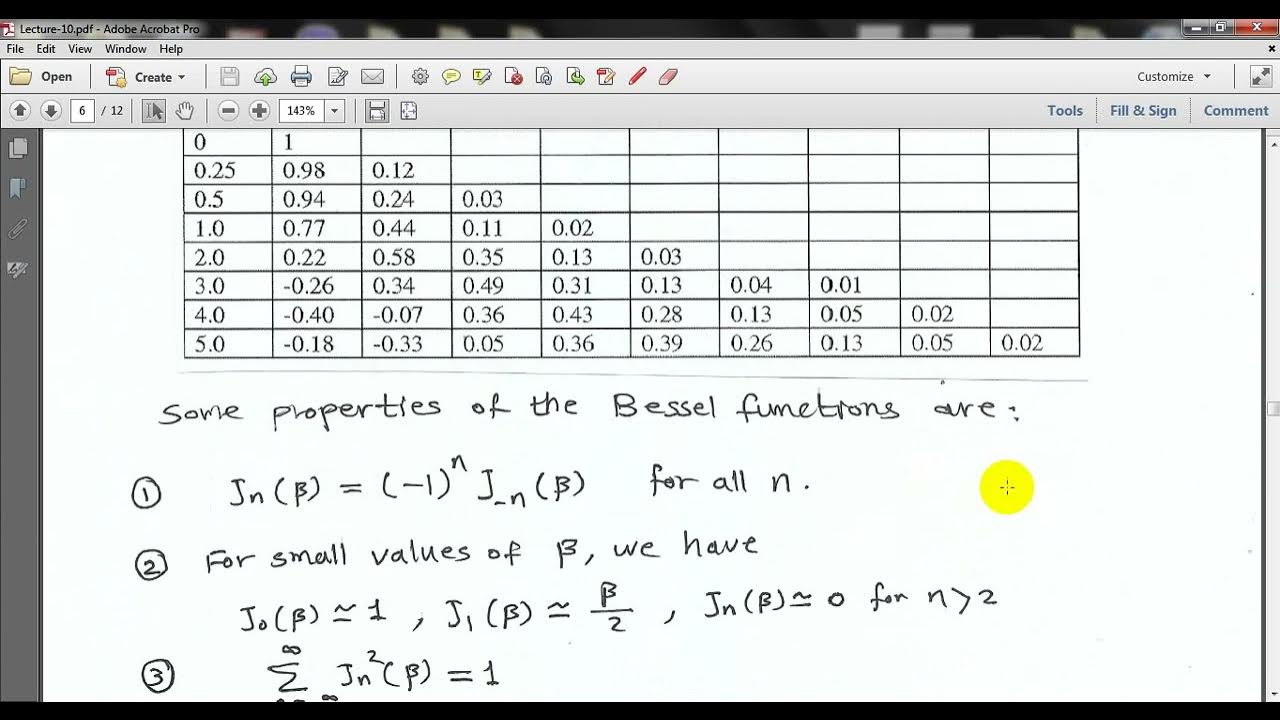 Lecture-10.pdf - Adobe Acrobat Pro
File Edit View Window Help
Open Create Customize
6 / 12 143% Tools Fill & Sign Comment
0 1
0.25 0.98 0.12
0.5 0.94 0.24 0.03
1.0 0.77 0.44 0.11 0.02
2.0 0.22 0.58 0.35 0.13 0.03
3.0 -0.26 0.34 0.49 0.31 0.13 0.04 0.01
4.0 -0.40 -0.07 0.36 0.43 0.28 0.13 0.05 0.02
5.0 -0.18 -0.33 0.05 0.36 0.39 0.26 0.13 0.05 0.02
Some properties of the Bessel functions are:
① Jn(β) = (-1)^n J-n(β) for all n.
② For small values of β, we have
J₀(β) ≃ 1 , J₁(β) ≃ β/2 , Jn(β) ≃ 0 for n > 2
③ ∑ ∞ Jn²(β) = 1